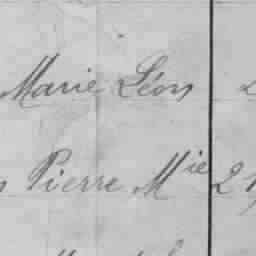 Marie Léon
Pierre Mie 2